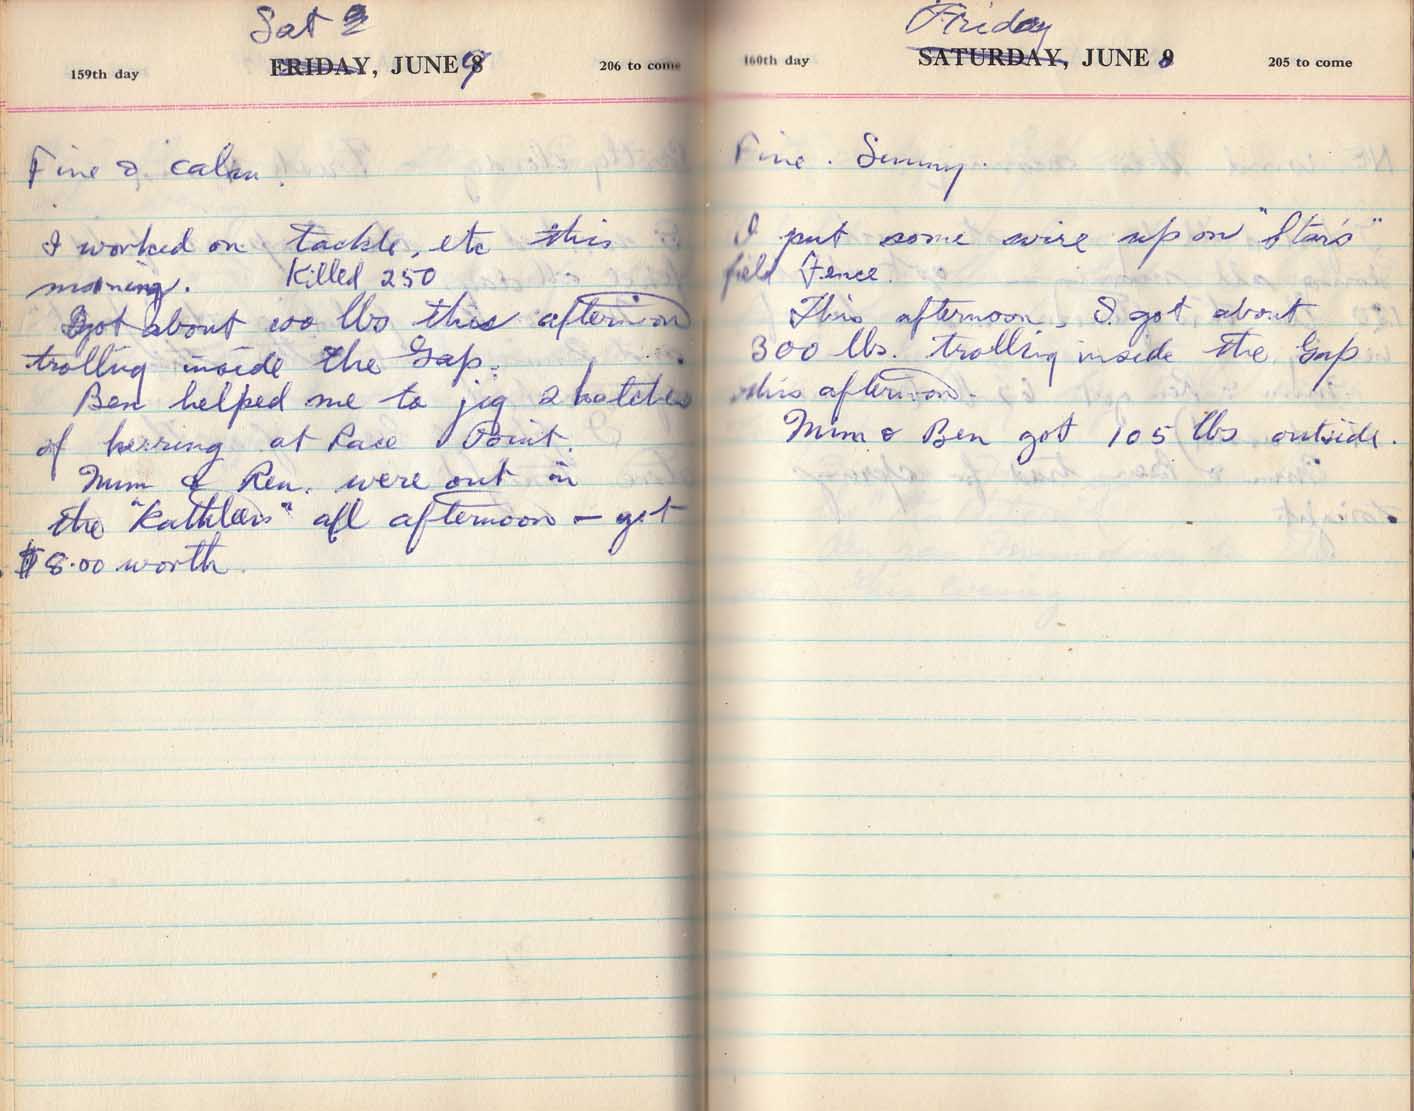 Sat 9
159th day FRIDAY, JUNE 9 206 to come
Fine & calm.
I worked on tackle, etc this
morning. Killed 250
Got about 100 lbs this afternoon
trolling inside the Gap.
Ben helped me to jig 2 batches
of herring at Race Point.
Mum & Ben. were out in
the "Kathleen" all afternoon – got
$8.00 worth.
Friday
160th day SATURDAY, JUNE 8 205 to come
Fine. Sunny.
I put some wire up on "Stan's"
field Fence.
This afternoon, I got about
300 lbs. trolling inside the Gap
this afternoon.
Mum & Ben got 105 lbs outside.